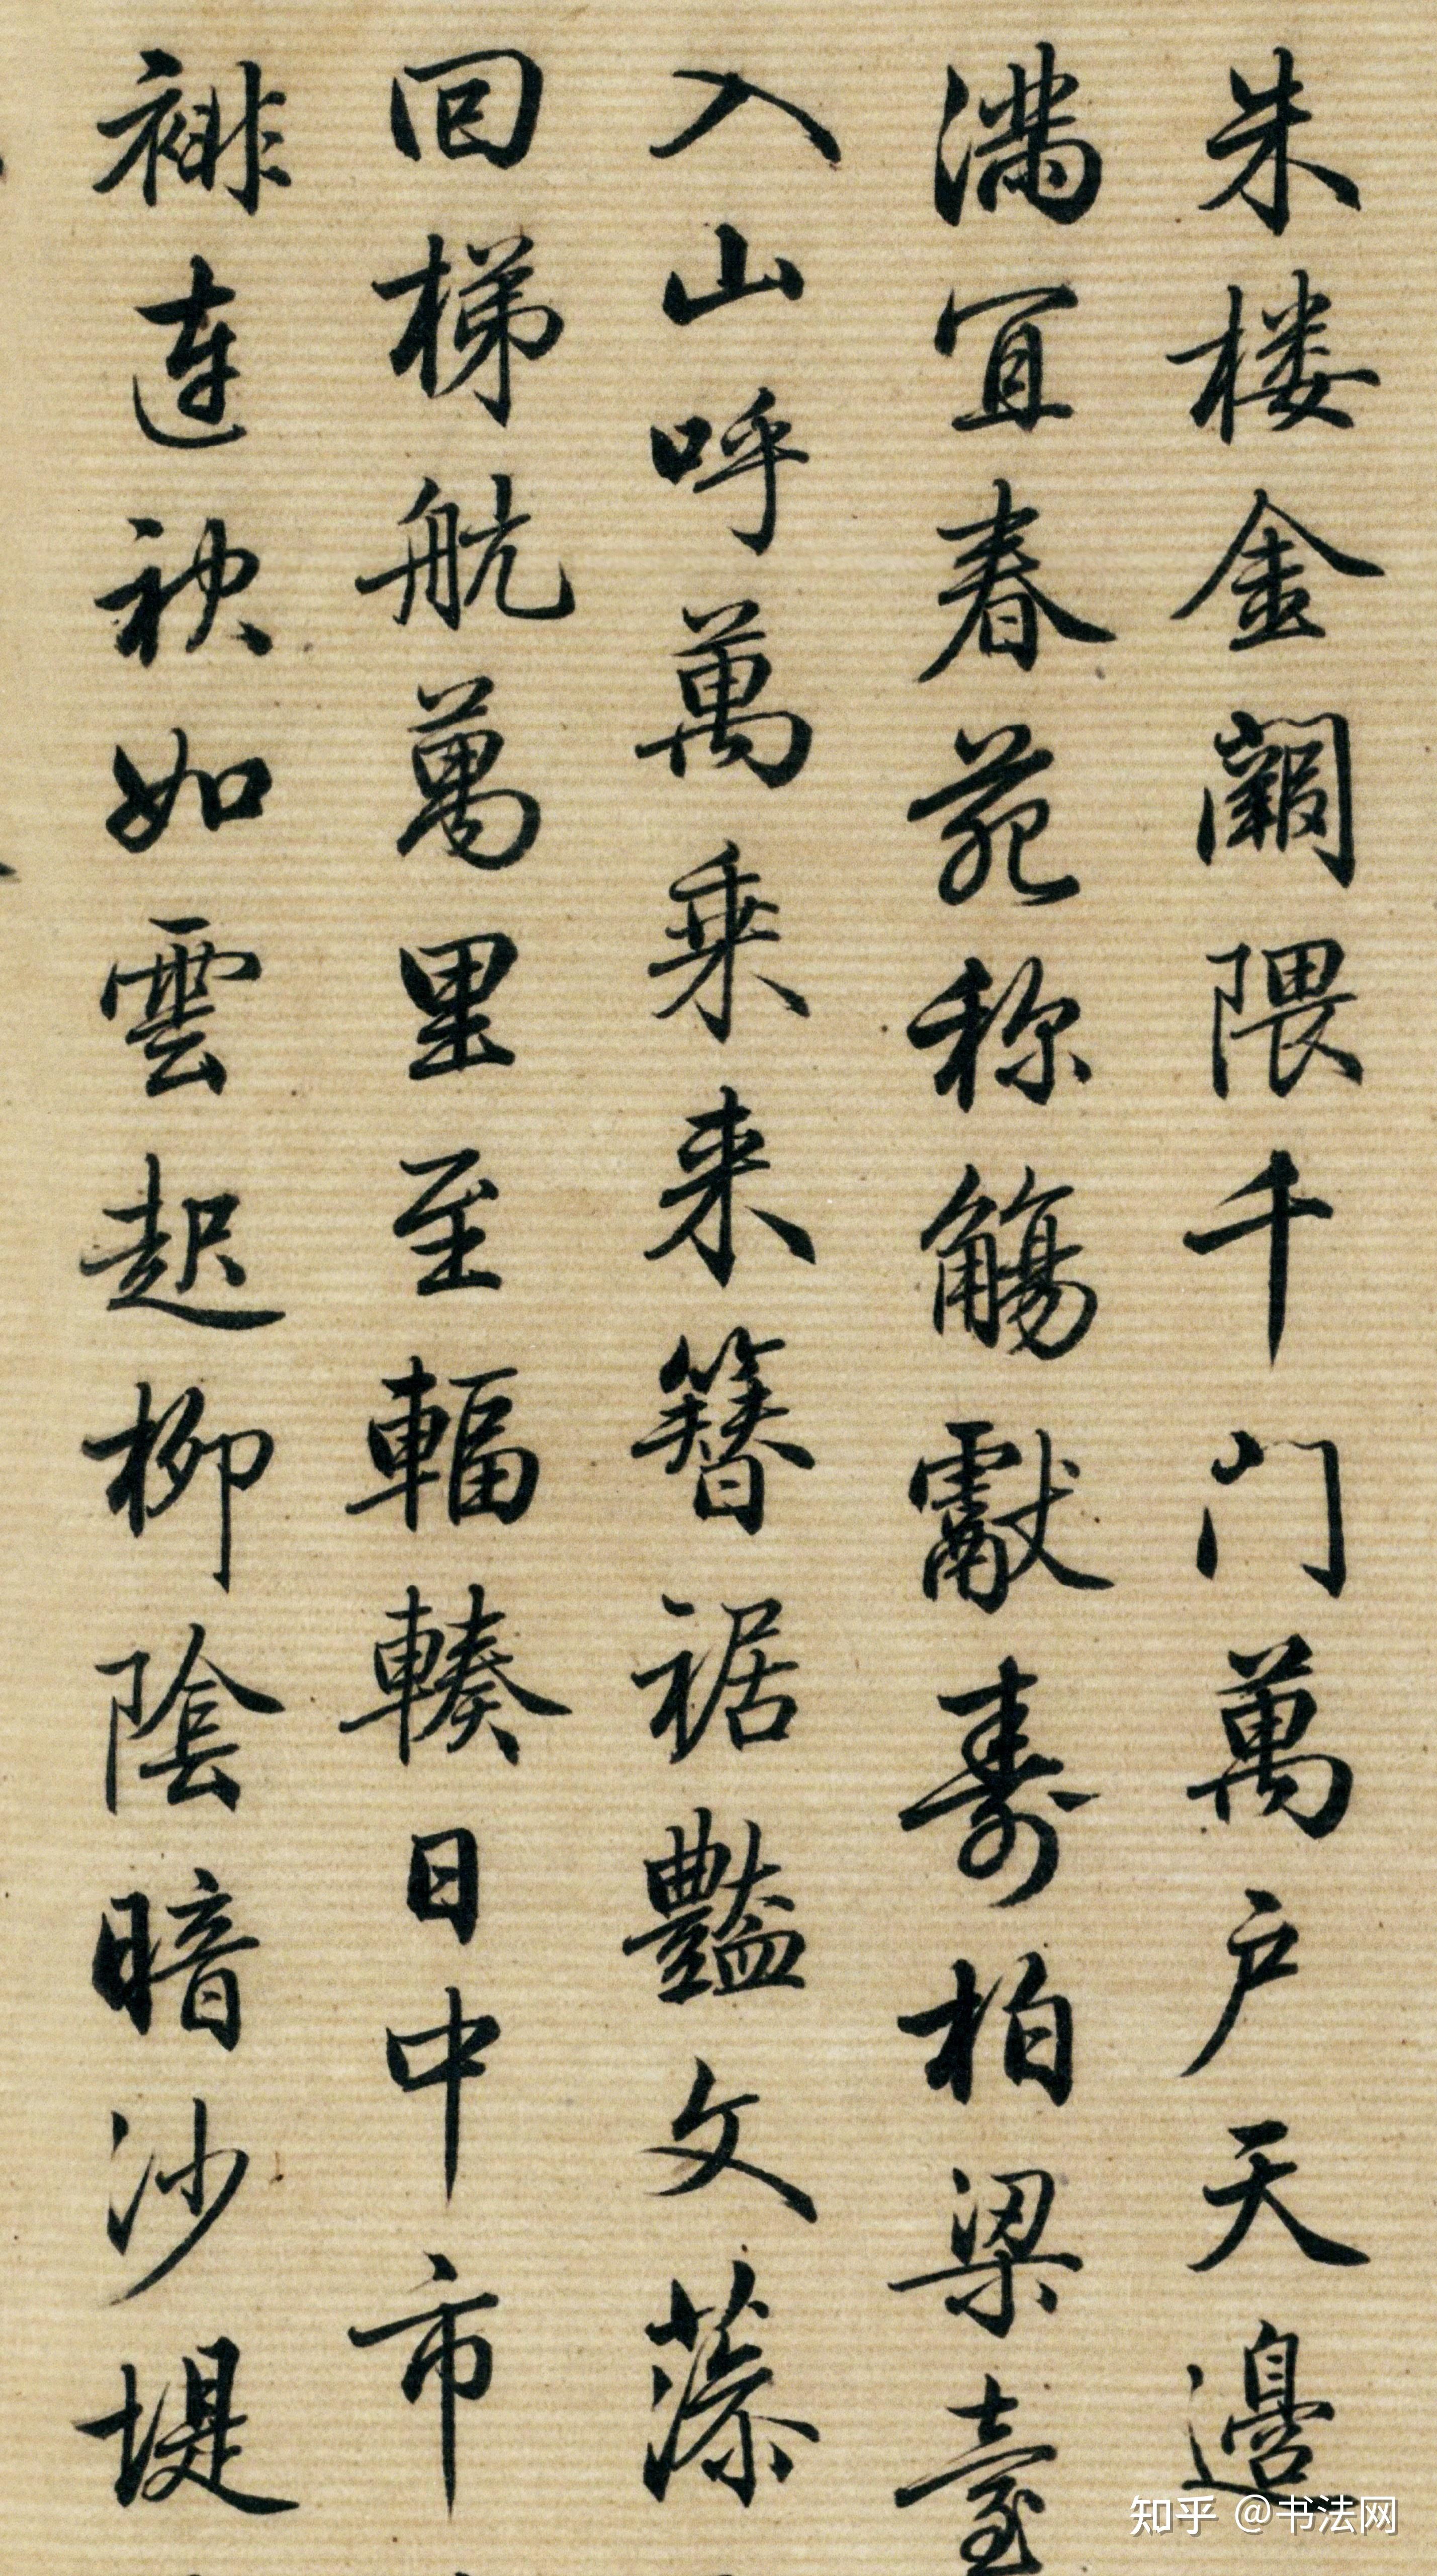 朱楼金闕隈千門萬户天邊
滿宜春苑称觴獻壽柏梁臺
入山呼萬乗来簪裾豔文藻
回梯航萬里至輻輳日中市
連袂如雲起柳陰暗沙堤
知乎 @书法网